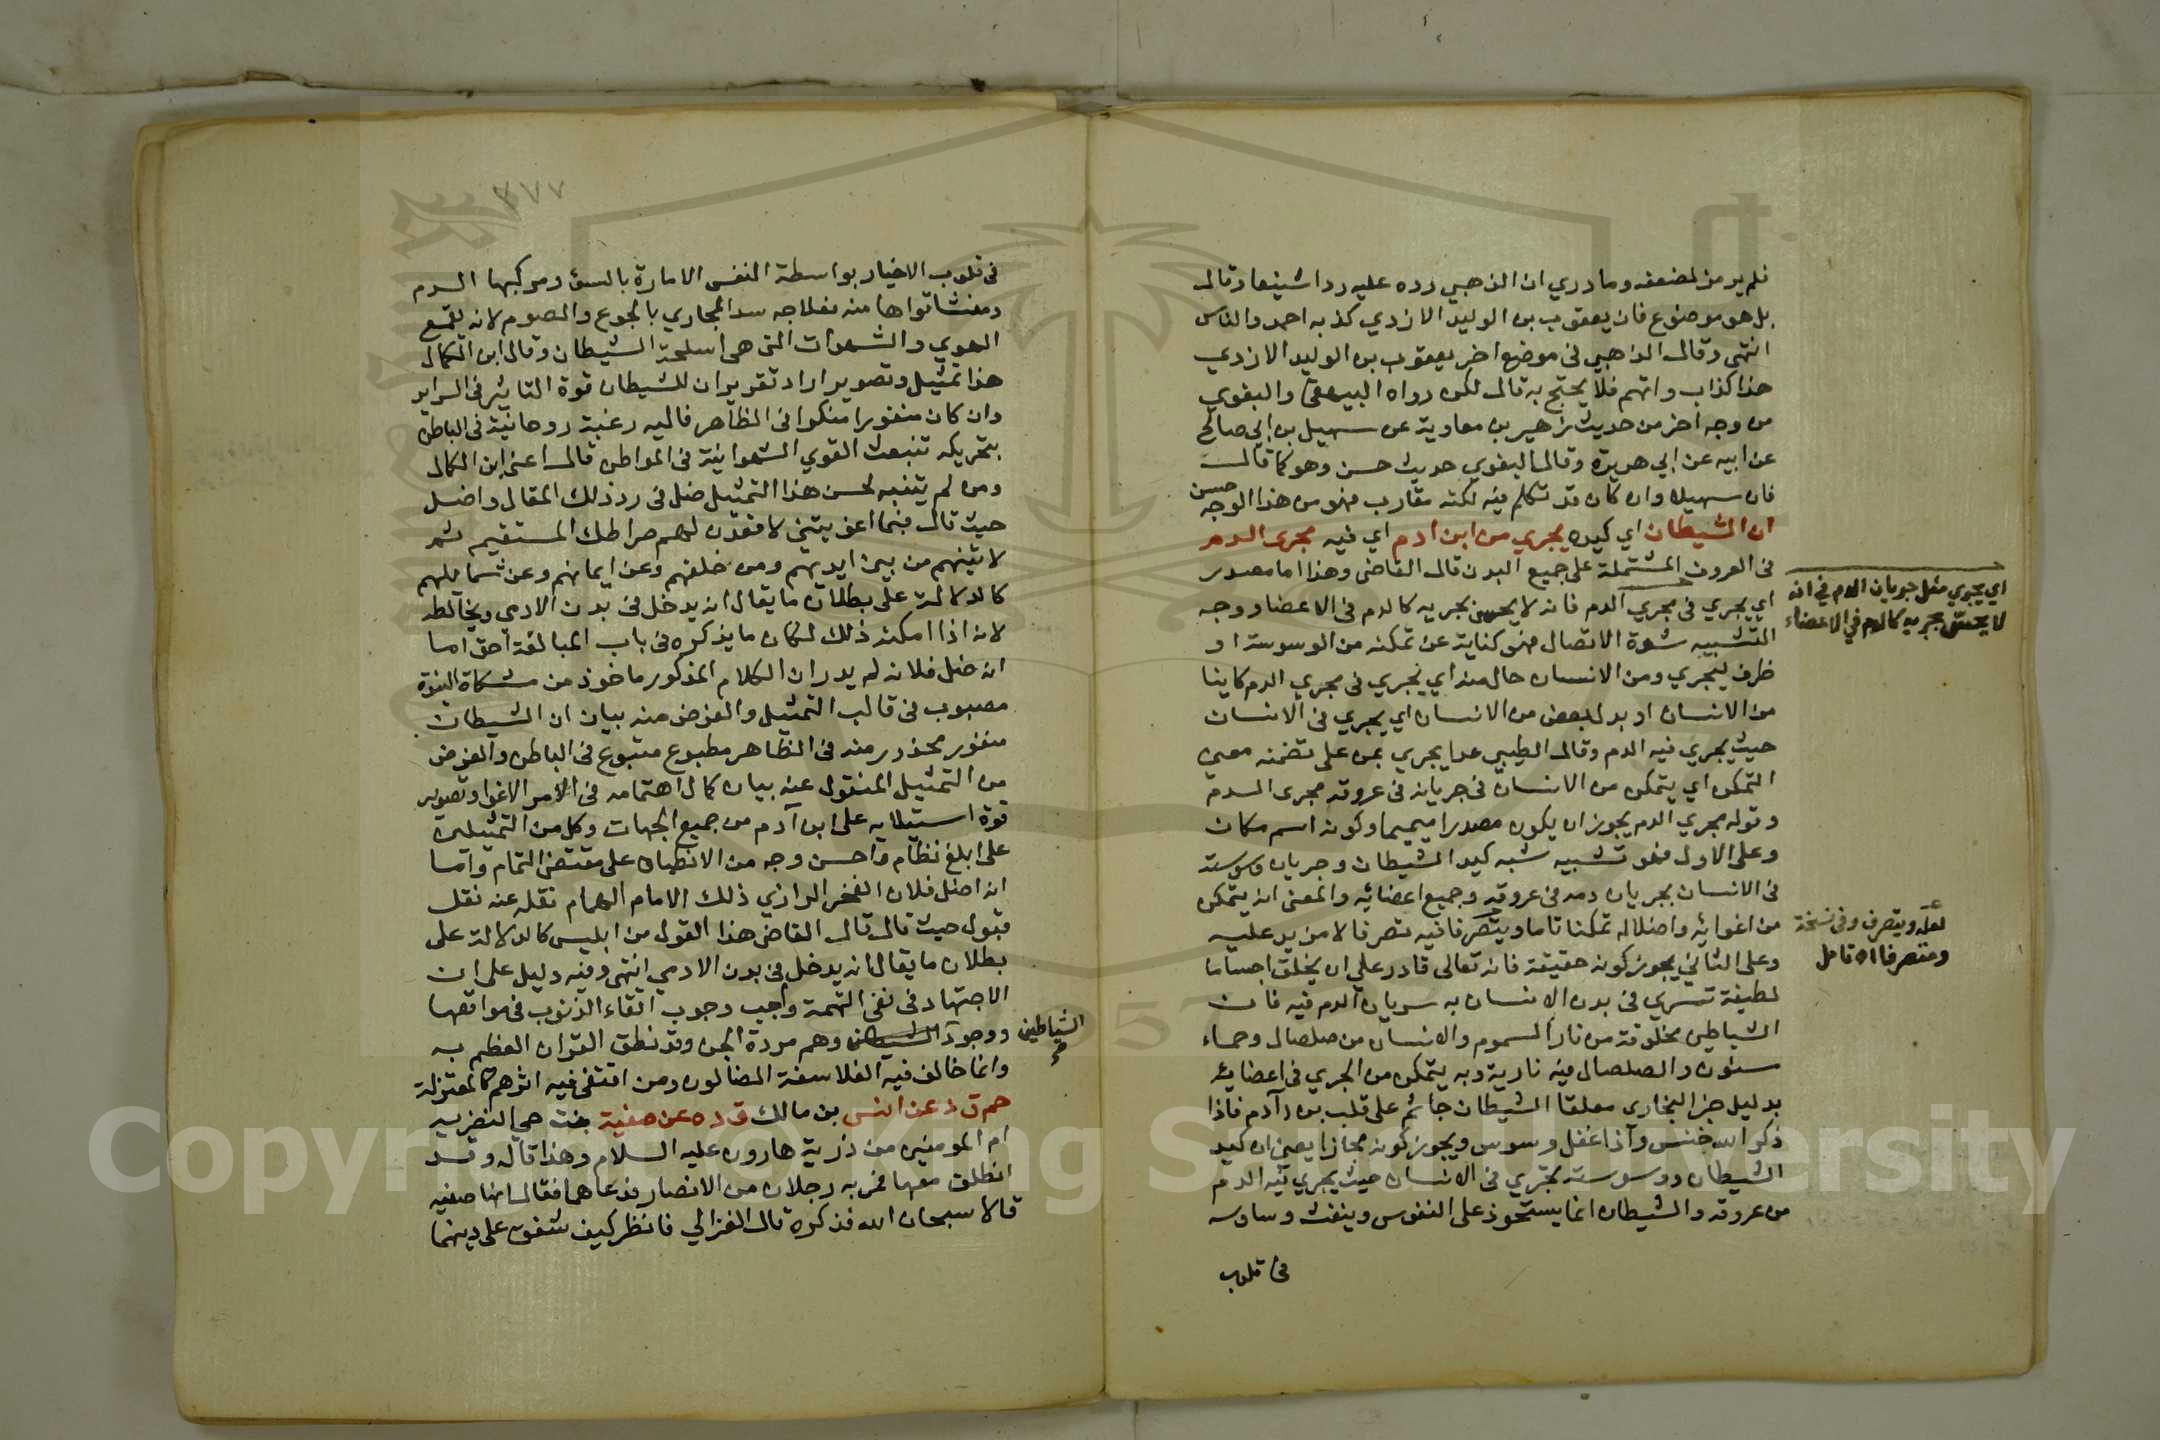 فلم يرمز لضعفه وما دري ان الذهبي رده عليه ردا شنيعا وقال
بل هو موضوع فان يعقوب بن الوليد الازدي كذبه احمد والناس
انتهى وقال الذهبي في موضع اخر يعقوب بن الوليد الازدي
هذا كذاب واتهم فلا يحتج به قال لكن رواه البيهقي والبغوي
من وجه اخر من حديث زهير بن معاوية عن سهيل بن ابي صالح
عن ابيه عن ابي هريرة وقال البغوي حديث حسن وهو كما قال
فان سهيلا وان كان قد تكلم فيه لكنه مقارب فهو من هذا الوجه حسن
ان الشيطان اي كيده يجري من ابن ادم اي فيه مجرى الدم
في العروق المشتملة على جميع البدن قال القاضي وهذا اما مصدر
اي يجري في مجري الدم فانه لا يحس بجريه كالدم في الاعضا ووجه
التشبيه شدة الاتصال فهو كناية عن تمكنه من الوسوسة او
ظرف ليجري ومن الانسان حال منه اي يجري في مجري الدم كاينا
من الانسان او بدل بعض من الانسان اي يجري في الانسان
حيث يجري فيه الدم وقال الطيبي عدا يجري بمن على تضمنه معنى
التمكن اي يتمكن من الانسان في جريانه في عروقه مجرى الدم
وقوله مجري الدم يجوز ان يكون مصدرا ميميا وكونه اسم مكان
وعلى الاول فهو تشبيه شبه كيد الشيطان وجريان وسوسته
في الانسان بجريان دمه في عروقه وجميع اعضائه والمعنى انه يتمكن
من اغوائه واضلاله تمكنا تاما ويتصرفا فيه تصرفا لا مزيد عليه
وعلى الثاني يجوز كونه حقيقة فانه تعالى قادر على ان يخلق اجساما
لطيفة تسري في بدن الانسان به سريان الدم فيه فان
الشياطين مخلوقة من نار السموم والانسان من صلصال وحماء
مسنون والصلصال فيه نارية وبه يتمكن من الجري في اعضائه
بدليل خبر البخاري معلقا الشيطان جاثم على قلب بن ادم فاذا
ذكر الله خنس واذا غفل وسوس ويجوز كونه مجازا يعني ان كيد
الشيطان ووسوسته تجري في الانسان حيث يجري فيه الدم
من عروقه والشيطان انما يستحوذ على النفوس وينفث وساوسه
في قلوب
اي يجري مثل جريان الدم في انه
لا يحس بجريه كالدم في الاعضاء
لعله ويتصرف وفي نسخة
ومتصرفا اه تامل
في قلوب الاخيار بواسطة النفس الامارة بالسوء ومركبها الدم
ومنشا قواها منه فعلاجه سد المجاري بالجوع والصوم لانه يقمع
الهوي والشهوات التي هي اسلحة الشيطان وقال ابن الكمال
هذا تمثيل وتصوير اراد تقرير ان للشيطان قوة التاثير في السراير
وان كان منفورا منكرا في الظاهر فاليه رغبة روحانية في الباطن
بتحريكه تنبعث القوي الشهوانية في المواطن قال اعني ابن الكمال
ومن لم يتنبه لحسن هذا التمثيل ضل في رد ذلك المقال واضل
حيث قال فبما اغويتني لاقعدن لهم صراطك المستقيم ثم
لاتينهم من بين ايديهم ومن خلفهم وعن ايمانهم وعن شمايلهم
كالدلالة على بطلان ما يقال انه يدخل في بدن الادمي ويخالطه
لانه اذا امكنه ذلك لكان ما يذكره في باب المبالغة احق اما
انه ضل فلانه لم يدر ان الكلام المذكور ماخوذ من مشكاة النبوة
مصبوب في قالب التمثيل والغرض منه بيان ان الشيطان
منفور محذور منه في الظاهر مطبوع متبوع في الباطن والغرض
من التمثيل المنقول عنه بيان كمال اهتمامه في الامر الاغوا وتصوير
قوة استيلايه على ابن آدم من جميع الجهات وكل من التمثيلين
على ابلغ نظام واحسن وجه من الانطباق على مقتضى التمام واما
انه اضل فلان الفخر الرازي ذلك الامام الهمام نقله عنه نقل
قبول حيث قال قال القاضي هذا القول من ابليس كالدلالة على
بطلان ما يقال انه يدخل في بدن الادمي انتهى وفيه دليل على ان
الاجتهاد في نفي التهمة واجب وجوب اتقاء الذنوب في مواقعها
ووجود الشيطان وهم مردة الجن وقد نطق القران العظيم به
وانما خالف فيه الفلاسفة الضالون ومن اقتفى فيه اثرهم كالمعتزلة
حم ق د عن انس بن مالك ق د ه عن صفية بنت حيي النضرية
ام المومنين من ذرية هارون عليه السلام وهذا قاله وقد
انطلق معها فمر به رجلان من الانصار فدعاهما فقال انها صفيه
قالا سبحان الله فذكره قال الغزالي فانظر كيف شفق على دينهما
الشياطين
صح
Copyright © King Saud University